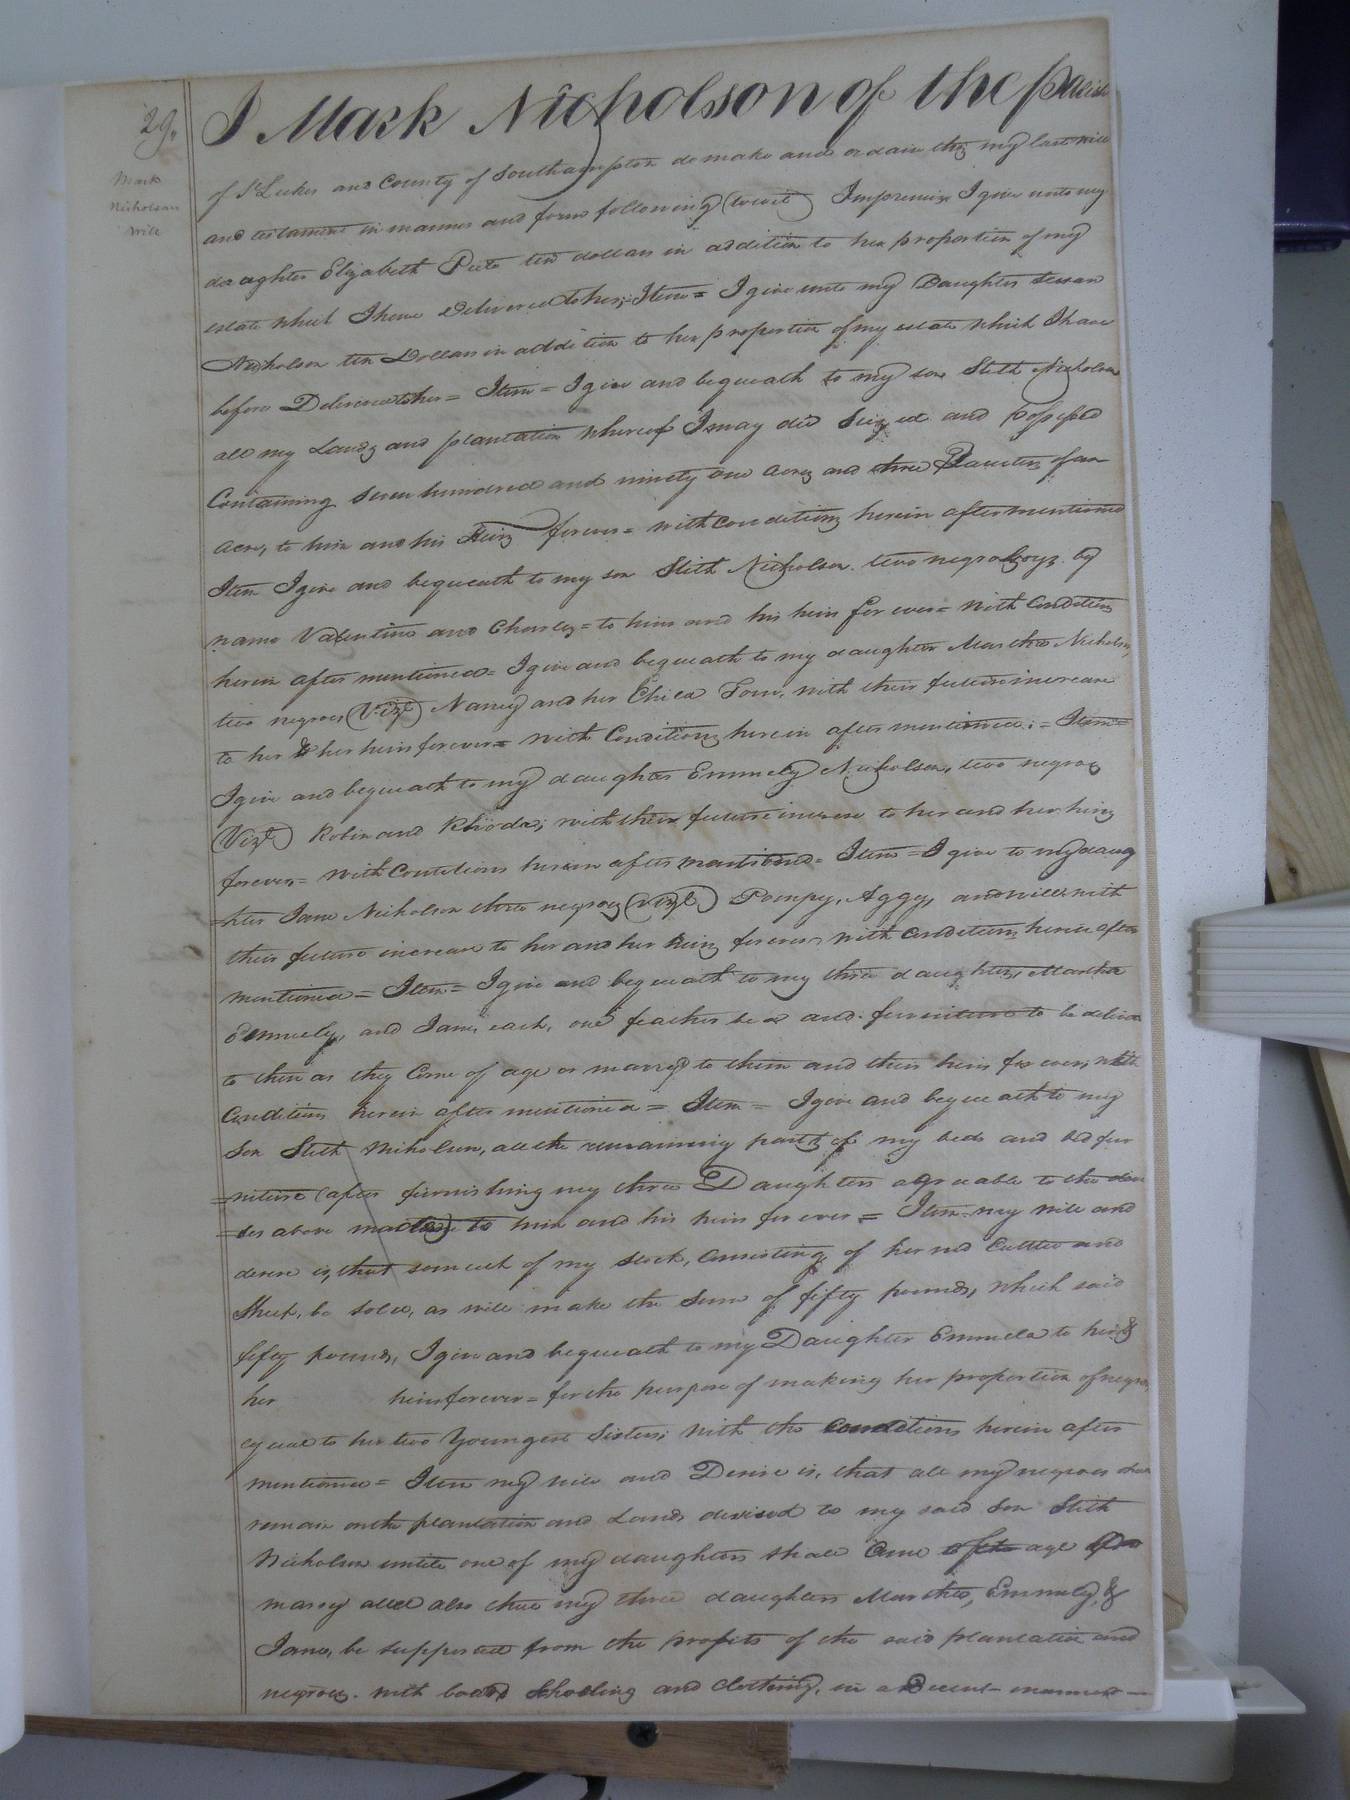 29.
Mark
Nicholson
Will
I Mark Nicholson of the Parish
of St Lukes and County of Southampton do make and ordain this my last will
and testament in manner and form following (towit) Impremis I give unto my
daughter Elizabeth ten dollars in addition to her proportion of my
estate which I have Delivered to her; Item = I give unto my Daughter Susan
Nicholson ten Dollars in addition to her proportion of my estate which I have
before Delivered to her = Item = I give and bequeath to my son Stith Nicholson
all my Lands and plantation whereof I may die Seized and possessed
Containing Seven hundred and ninety one acres and three Quarters of an
acre, to him and his Heirs forever = with conditions herein after mentioned
Item I give and bequeath to my son Stith Nicholson two negro boys by
name Valentine and Charles = to him and his heirs for ever = with Conditions
herein after mentioned = I give and bequeath to my daughter Martha Nicholson,
two negroes (Vizt) Nancy and her Child Tom, with their future increase
to her & her heirs forever = with Conditions herein after mentioned: = Item =
I give and bequeath to my daughter Emmely Nicholson, two negroes
(Vizt) Robin and Rhoda; with their future increase to her and her heirs
forever = with Conditions herein after mentioned = Item = I give to my daug
=hter Jane Nicholson three negroes (vizt.) Pompy, Aggy, and Will with
their future increase to her and her heirs forever with Conditions herein after
mentioned = Item = I give and bequeath to my three daughters, Martha
Emmely, and Jane, each, one feather bed and furniture to be deliver
to them as they Come of age or marry to them and their heirs for ever, with
Conditions herein after mentioned = Item = I give and bequeath to my
Son Stith Nicholson, all the remaining parts of my beds and bed fur
=niture (after furnishing my three Daughters agreeable to the
above to him and his heirs for ever = Item my will and
desire is, that so much of my stock, Consisting of horned Cattle and
Sheep, be sold, as will make the Sum of fifty pounds, which said
fifty pounds, I give and bequeath to my Daughter Emmela to her &
her heirs forever = for the purpose of making her proportion of negroes,
equal to her two Youngest Sisters, with the conditions herein after
mentioned = Item my will and Desire is, that all my negroes shall
remain on the plantation and Lands devised to my said Son Stith
Nicholson untill one of my daughters shall Come of age or
marry and also that my three daughters Martha, Emmely, &
Jane, be supported from the profits of the said plantation and
negroes. with board Schooling and Clothing, in a Decent manner